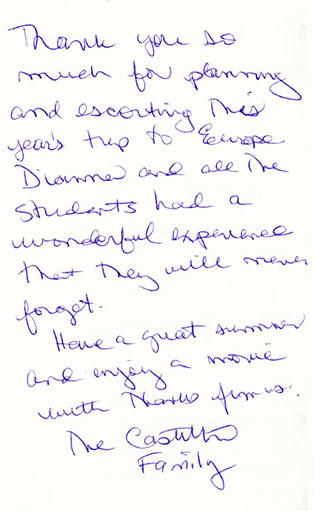 Thank you so
much for planning
and escorting this
year's trip to Europe
Dianna and all the
students had a
wonderful experience
that they will never
forget.
Have a great summer
and enjoy a movie
with Thanks from us.
The
Family